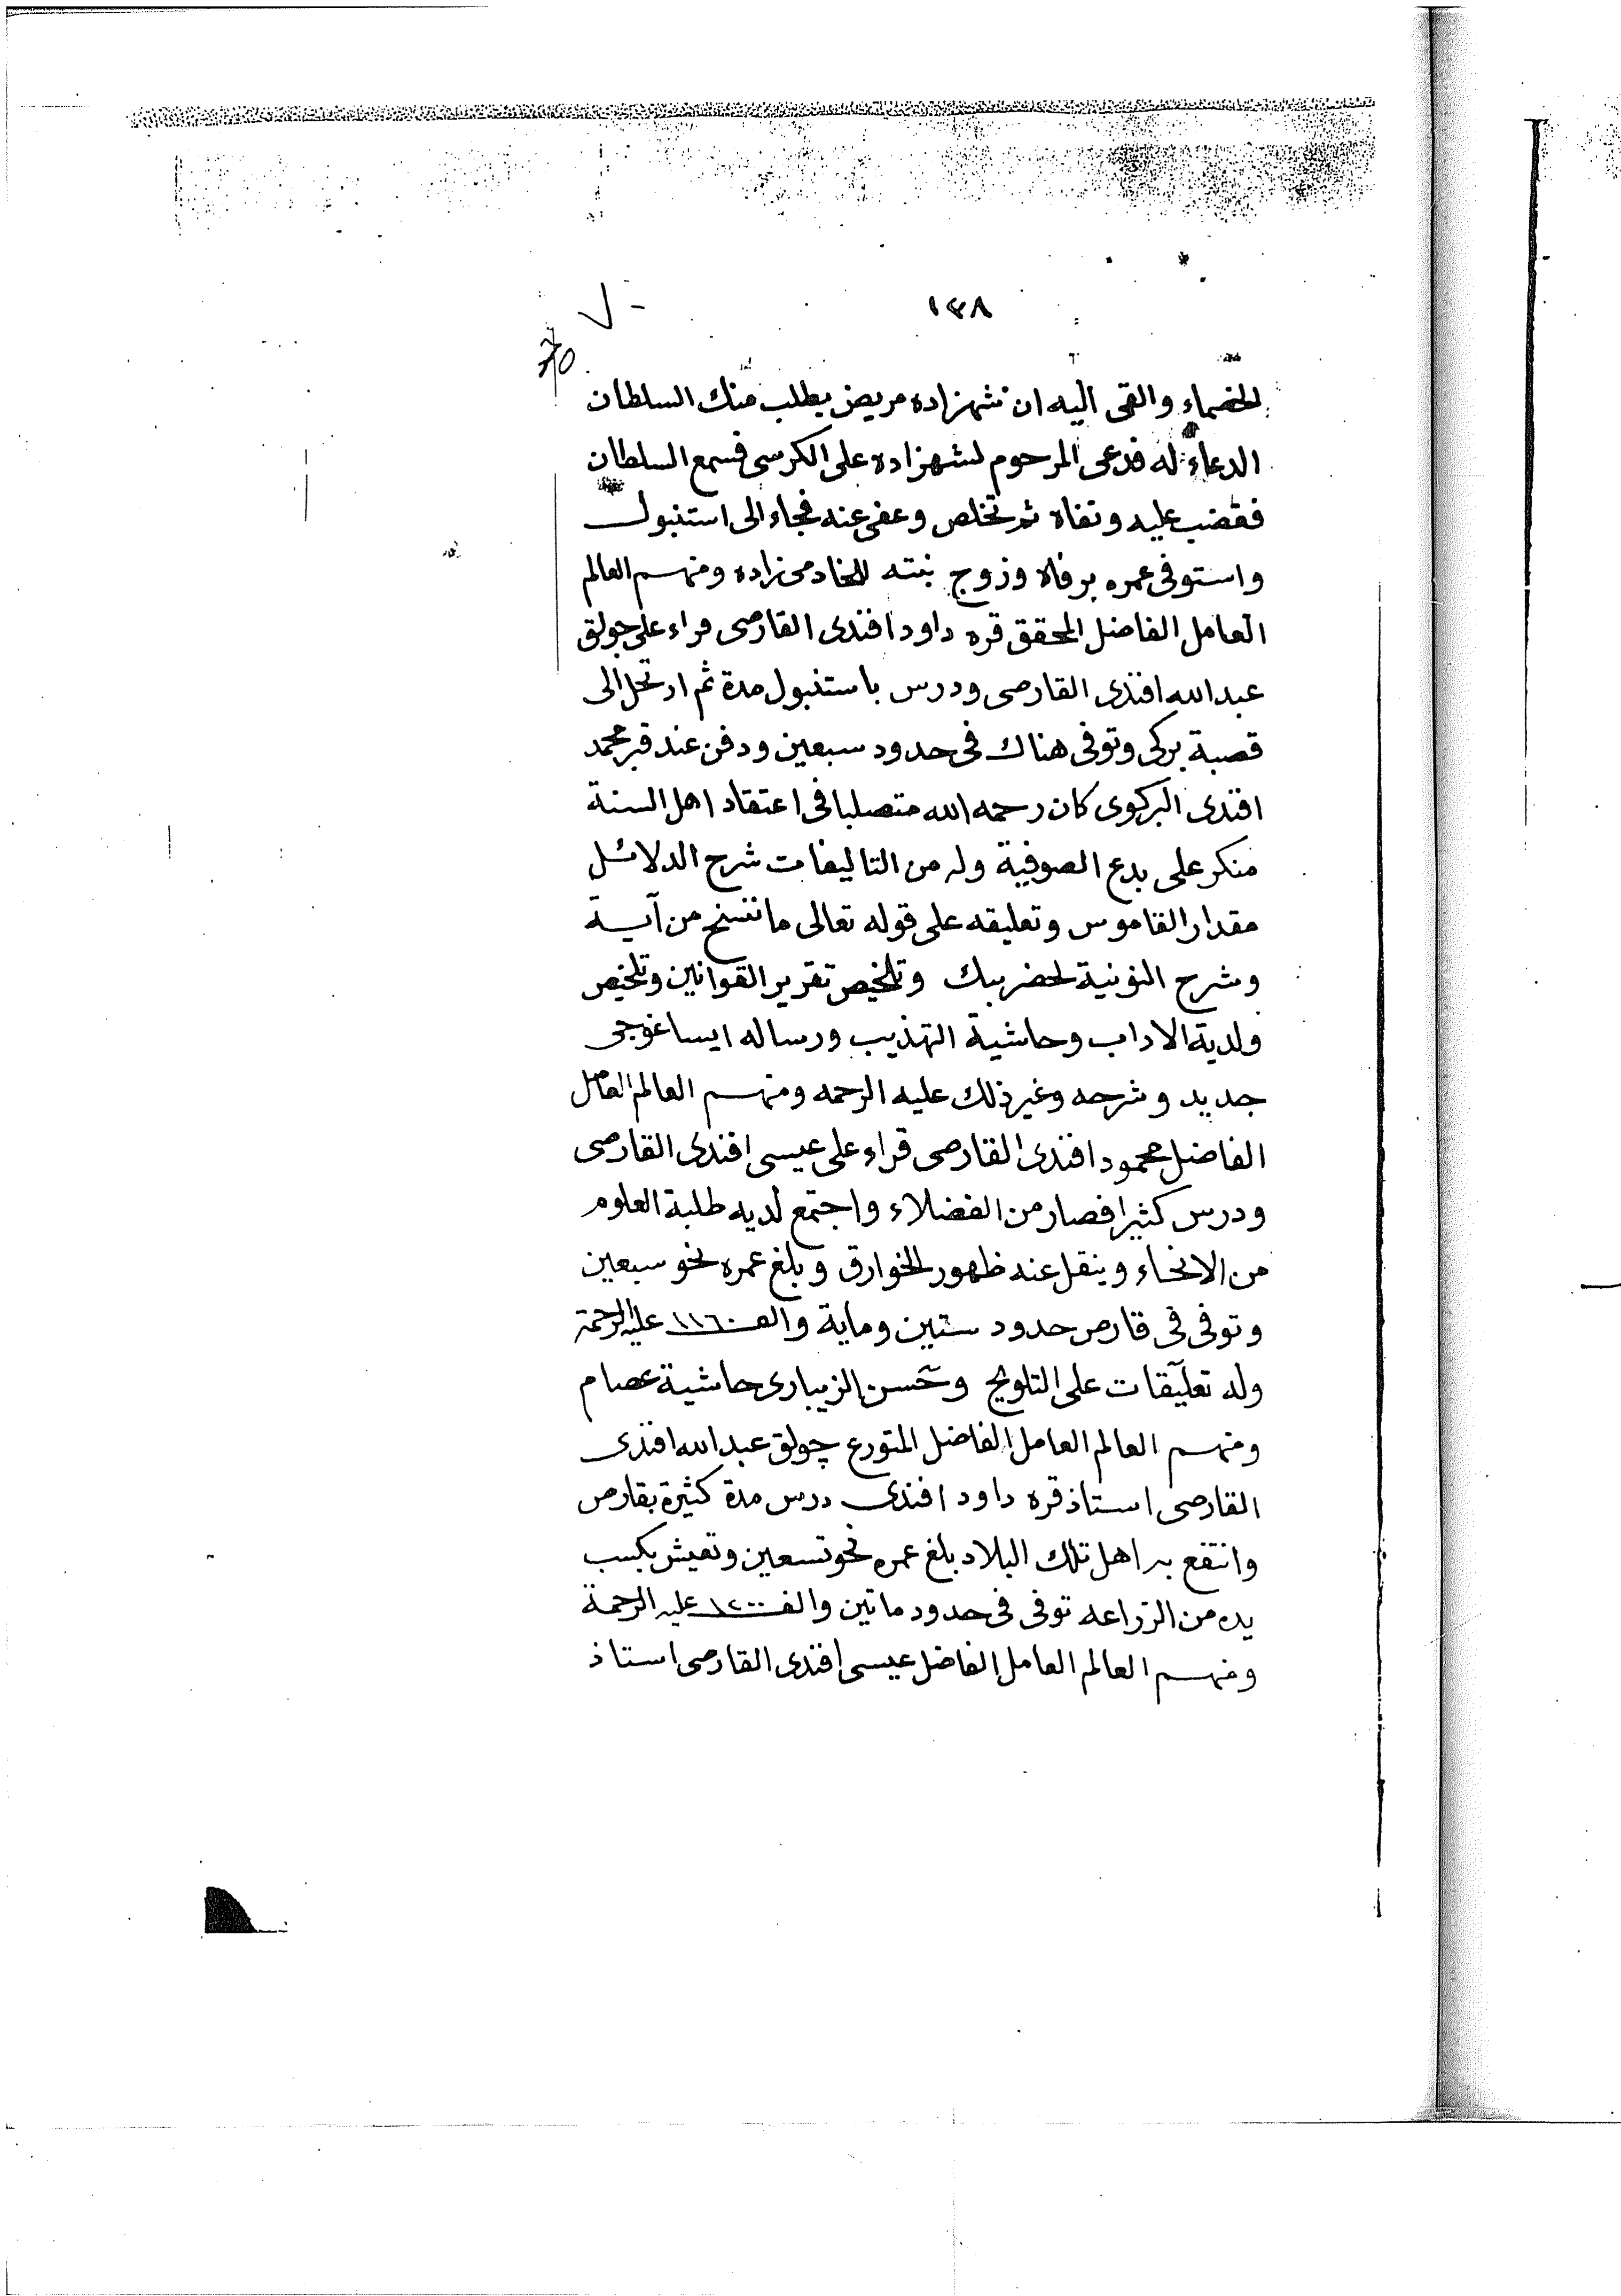 ١٤٨
70
الخصماء والقى اليه ان شهزاده مريض يطلب منك السلطان
الدعاء له فدعى المرحوم لشهزاده على الكرسى فسمع السلطان
فغضب عليه ونفاه ثم تخلص وعفى عنه فجاء الى استنبول
واستوفى عمره برفاه وزوج بنته للخادمى زاده ومنهم العالم
العامل الفاضل المحقق قره داود افندى القارصى قراء على جولق
عبد الله افندى القارصى ودرس باستنبول مدة ثم ارتحل الى
قصبة بركى وتوفى هناك فى حدود سبعين ودفن عند قبر محمد
افندى البركوى كان رحمه الله متصلبا فى اعتقاد اهل السنة
منكر على بدع الصوفية وله من التاليفات شرح الدلائل
مقدار القاموس وتعليقه على قوله تعالى ما ننسخ من آية
وشرح النونية لخضر بيك وتلخيص تقرير القوانين وتلخيص
ولدية الاداب وحاشية التهذيب ورساله ايساغوجى
جديد وشرحه وغير ذلك عليه الرحمه ومنهم العالم العامل
الفاضل محمود افندى القارصى قراء على عيسى افندى القارصى
ودرس كثيرا فصار من الفضلاء واجتمع لديه طلبة العلوم
من الانحاء وينقل عنه ظهور الخوارق وبلغ عمره نحو سبعين
وتوفى فى قارص حدود ستين وماية والف ١١٦٠ عليه الرحمة
وله تعليقات على التلويح وحسن الزيبارى حاشية عصام
ومنهم العالم العامل الفاضل المتورع چولق عبد الله افندى
القارصى استاذ قره داود افندى درس مدة كثيرة بقارص
وانتفع به اهل تلك البلاد بلغ عمره نحو تسعين وتعيش بكسب
يده من الزراعه توفى فى حدود ماتين والف ١٢٠٠ عليه الرحمة
ومنهم العالم العامل الفاضل عيسى افندى القارصى استاذ